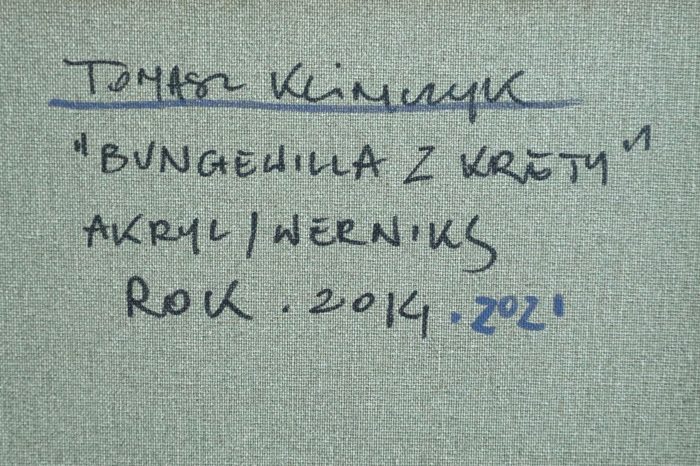 TOMASZ KLIMCZYK
"BUNGEWILLA Z KRETY"
AKRYL / WERNIKS
ROK . 2014 . 2021